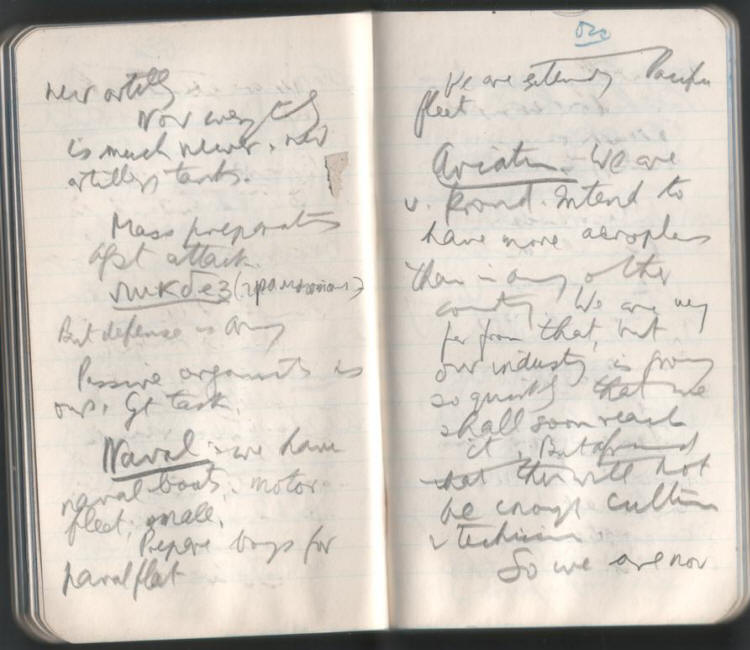 new artillery
Now everything
is much newer. new
artillery, tanks.
Mass preparation
agst attack.
(гражданские)
But defense is army
Passive organists is
our. Gt task.
Naval - we have
naval boats, motor
fleet, small.
Prepare boys for
naval fleet
We are extending Pacific
fleet
Aviation. We are
v. proud. Intend to
have more aeroplanes
than in any other
country. We are very
far from that, but
our industry is growing
so quickly that we
shall soon reach
it. But afraid
that there will not
be enough culture
technicians
So we are now